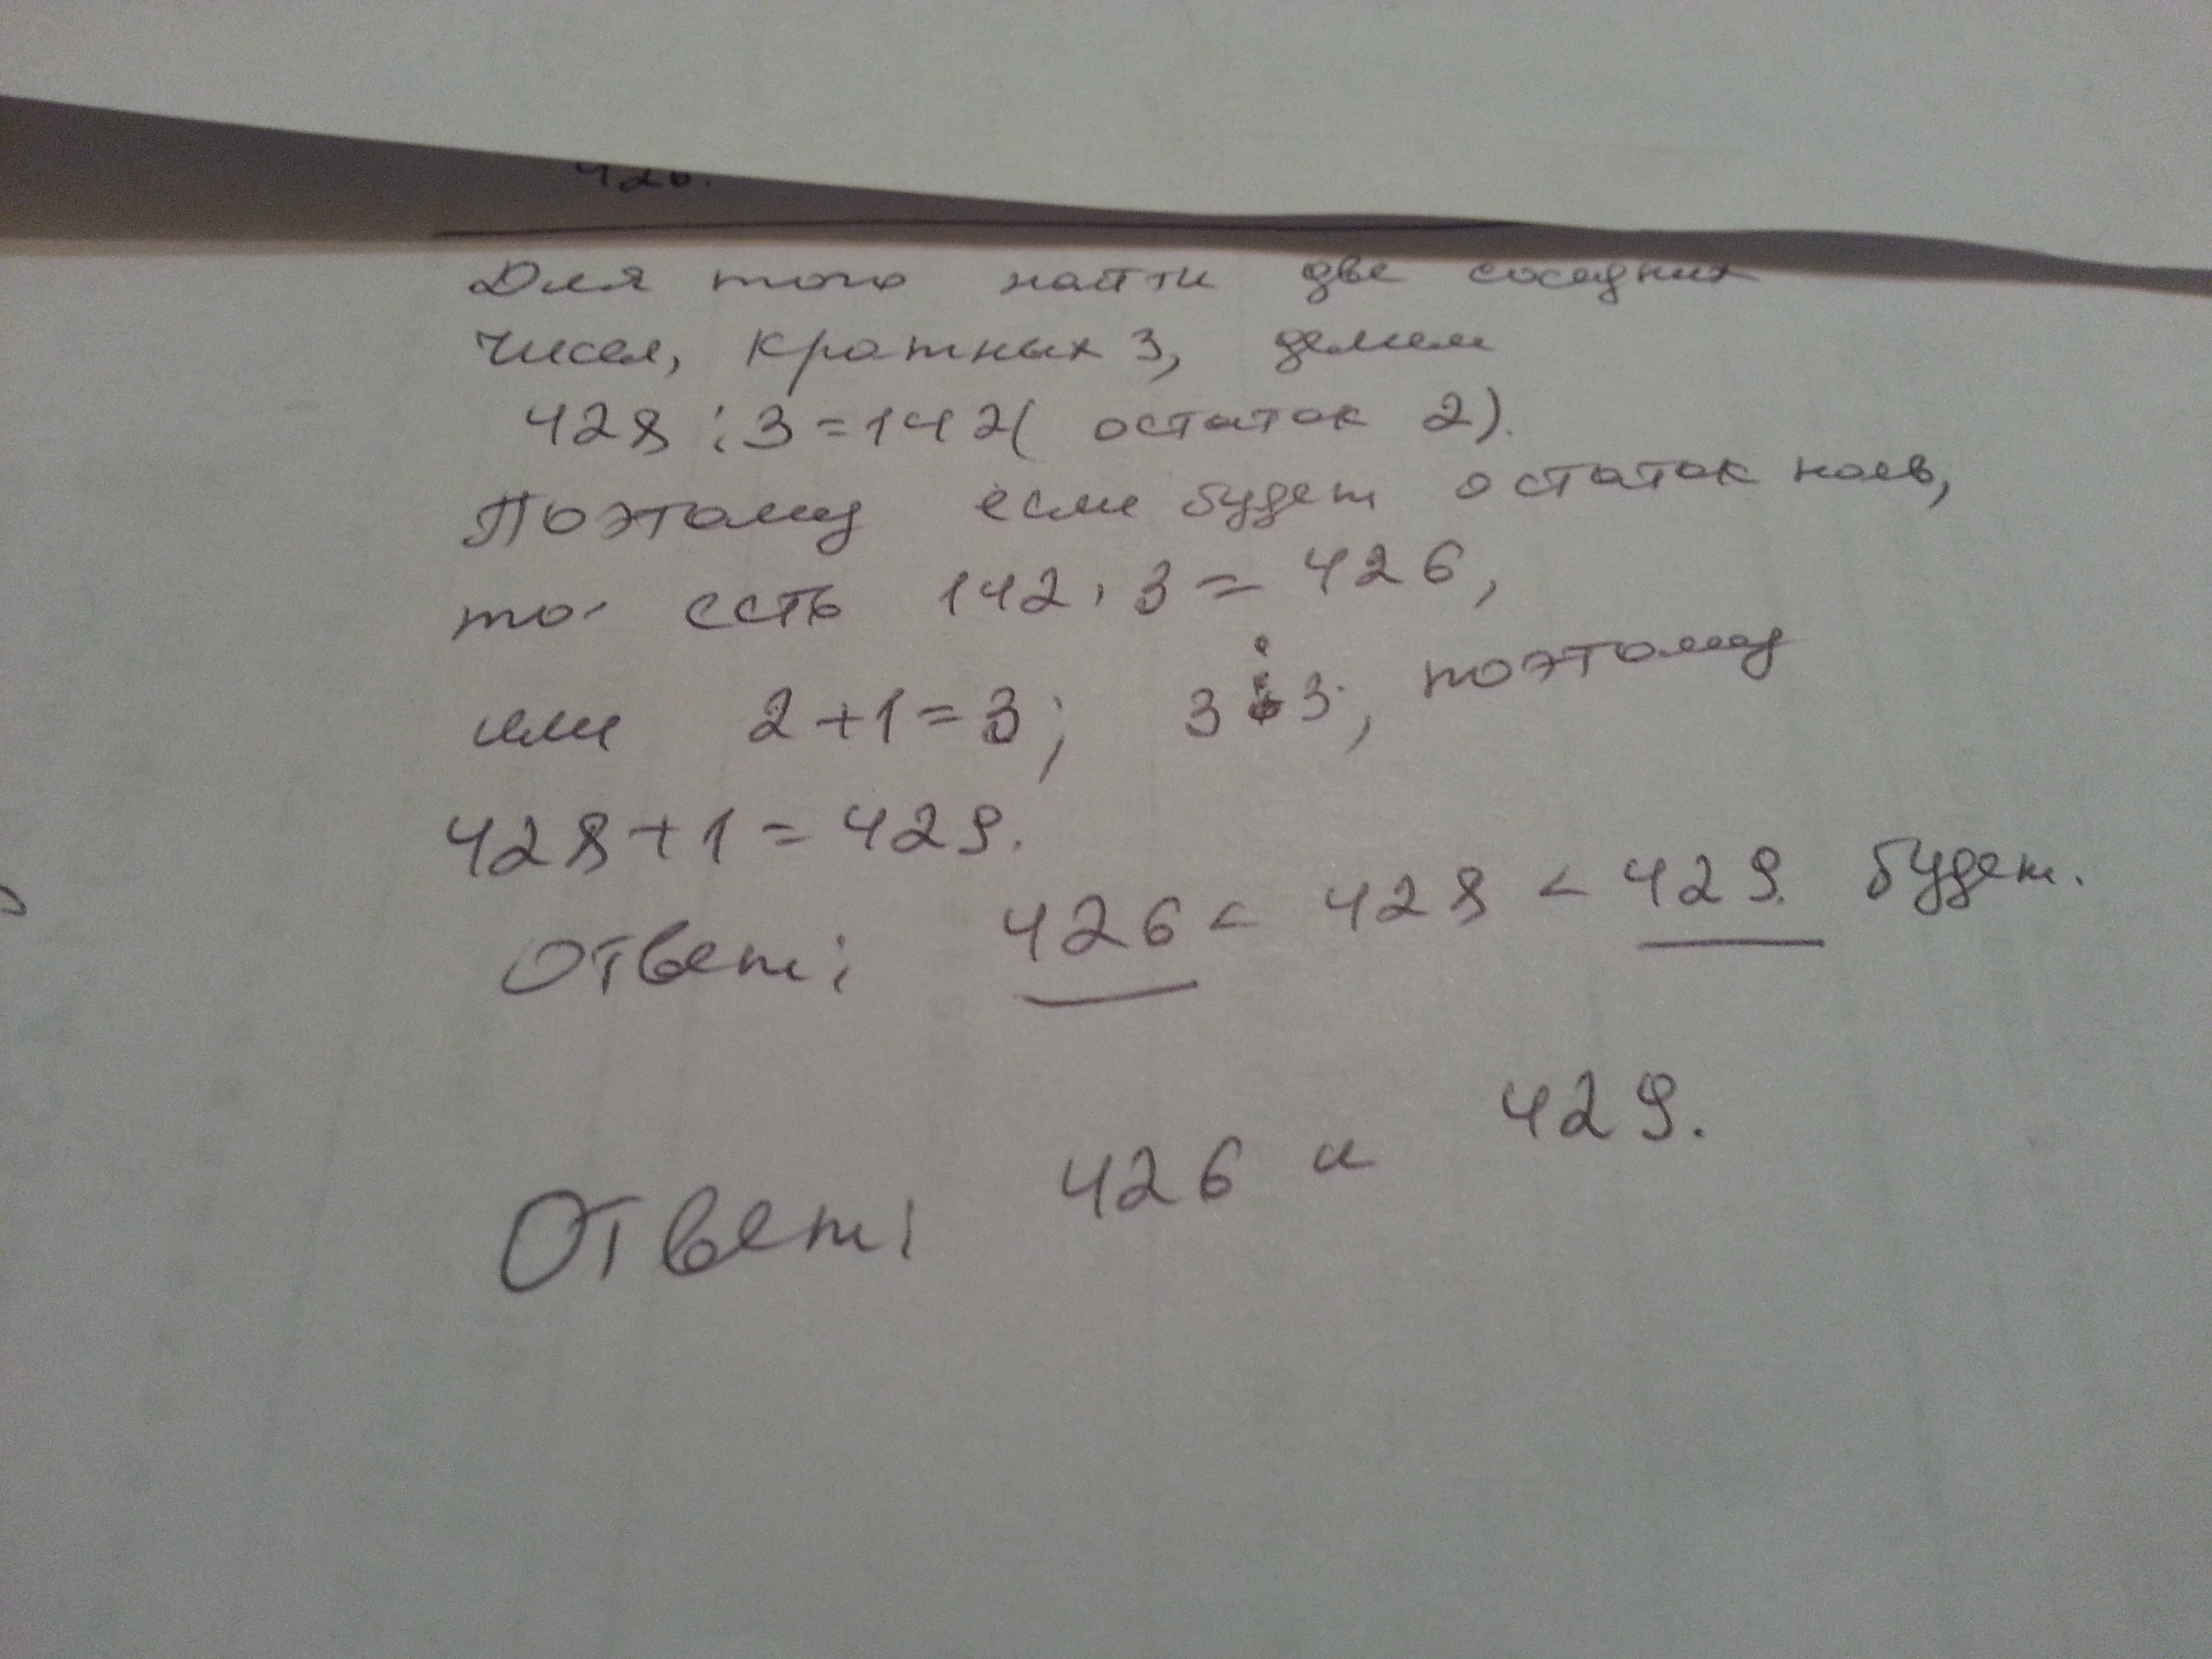 426.
Для того найти две соседних
чисел, кратных 3, делим
428 : 3 = 142 ( остаток 2).
Поэтому если будет остаток
то есть 142 · 3 = 426,
или 2 + 1 = 3; 3 ⋮ 3, поэтому
428 + 1 = 429.
Ответ: 426 < 428 < 429. будет.
Ответ: 426 и 429.